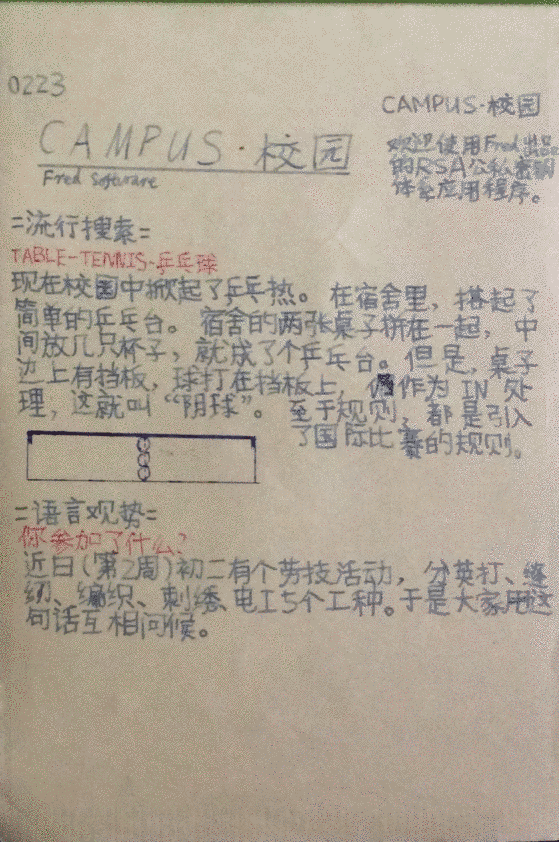 0223
CAMPUS·校园
Fred Software
CAMPUS·校园
欢迎使用Fred出品
的RSA公私密钥
体系应用程序。
=流行搜索=
TABLE-TENNIS·乒乓球
现在校园中掀起了乒乓热。在宿舍里，搭起了
简单的乒乓台。宿舍的两张桌子拼在一起，中
间放几只杯子，就成了个乒乓台。但是，桌子
边上有挡板，球打在挡板上，作为IN处
理，这就叫“阴球”。至于规则，都是引入
了国际比赛的规则。
=语言观势=
你参加了什么？
近日(第2周)初二有个劳技活动，分英打、缝
纫、编织、刺绣、电工5个工种。于是大家用这
句话互相问候。